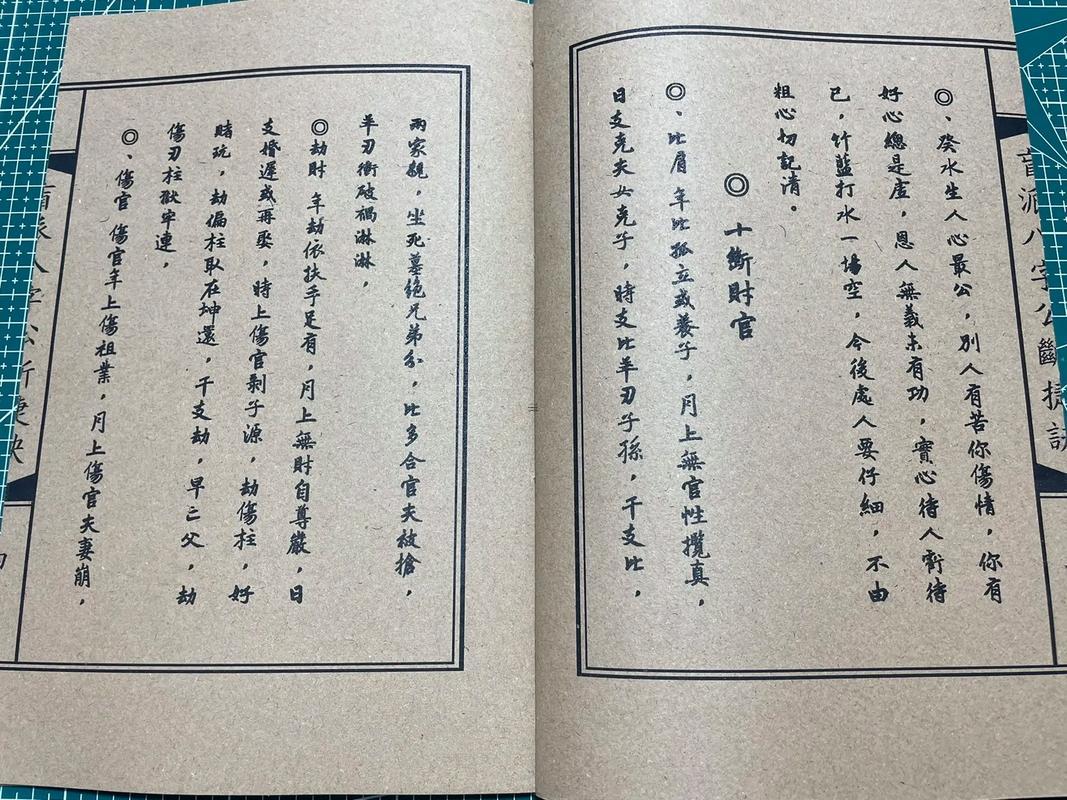 盲派八字公斷捷訣
◎、癸水生人心最公，別人有苦你傷情，你有
好心總是虛，恩人無義未有功，實心待人虧待
已，竹藍打水一場空，今後處人要仔細，不由
粗心切記清。
◎ 十斷財官
◎、比肩 年比孤立或養子，月上無官性攬真，
日支克夫女克子，時支比羊刃子孫，干支比，
兩家親，坐死墓絕兄弟分，比多合官夫被搶，
羊刃衝破禍淋淋，
◎劫財 年劫依扶手足有，月上無財自尊嚴，日
支婚遲或再娶，時上傷官剩子源，劫傷柱，好
賭玩，劫偏柱取在坤還，干支劫，早亡父，劫
傷刃柱獄牢連，
◎、傷官 傷官年上傷祖業，月上傷官夫妻崩，
派八字公斷捷訣